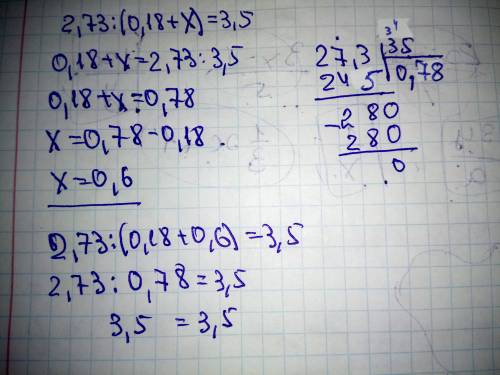 2,73:(0,18+x)=3,5
0,18+x=2,73:3,5
0,18+x=0,78
x=0,78-0,18
x=0,6
2,73:(0,18+0,6)=3,5
2,73:0,78=3,5
3,5=3,5
34
27,3 35
245 0,78
-280
280
0